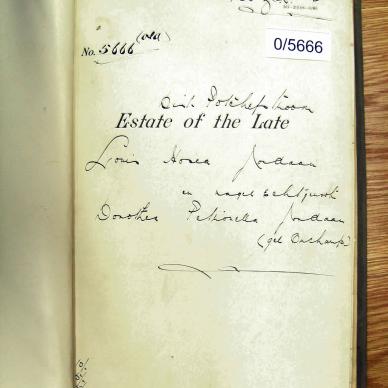 0/5666
No. 5666 (old)
Dist. Potchefstroom
Estate of the Late
Louis Hosea Jordaan
en nagel. echtgenoot
Dorothea Petronella Jordaan
(geb